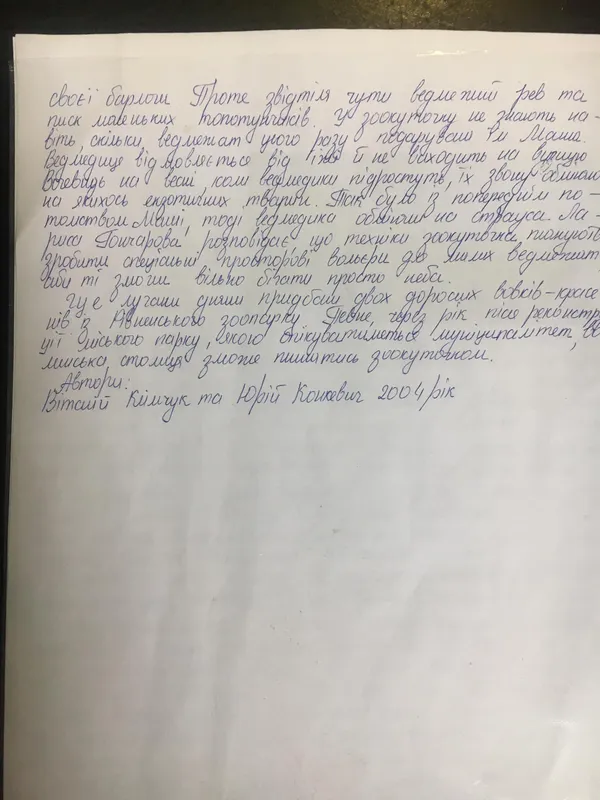 своєї барлоги Проте звідтіля чути ведмежий рев та
писк маленьких топотунчиків. У зоокуточку не знають на-
віть, скільки ведмежат цього разу подарувала їм Маша.
Ведмедиця відмовляється від їжі й не виходить на вулицю
Очевидь на весні, коли ведмедики підростуть, їх знову обміняю
на якихось екзотичних тварин. Так було із попереднім по-
томством Маші, тоді ведмедика обміняли на страуса. Ла-
риса Гончарова розповідає, що техніки зоокуточка планують
зробити спеціальні просторові вольєри для малих ведмежат
аби ті змогли вільно бігати просто неба.
Ще лучани днями придбали двох дорослих вовків-красе
нів із Рівненського зоопарку. Певне, через рік після реконстр
ції міського парку, якого опікуватиметься муніципалітет, во
линська столиця зможе пишатись зоокуточком.
Автори:
Віталій Клімчук та Юрій Конкевич 2004 рік